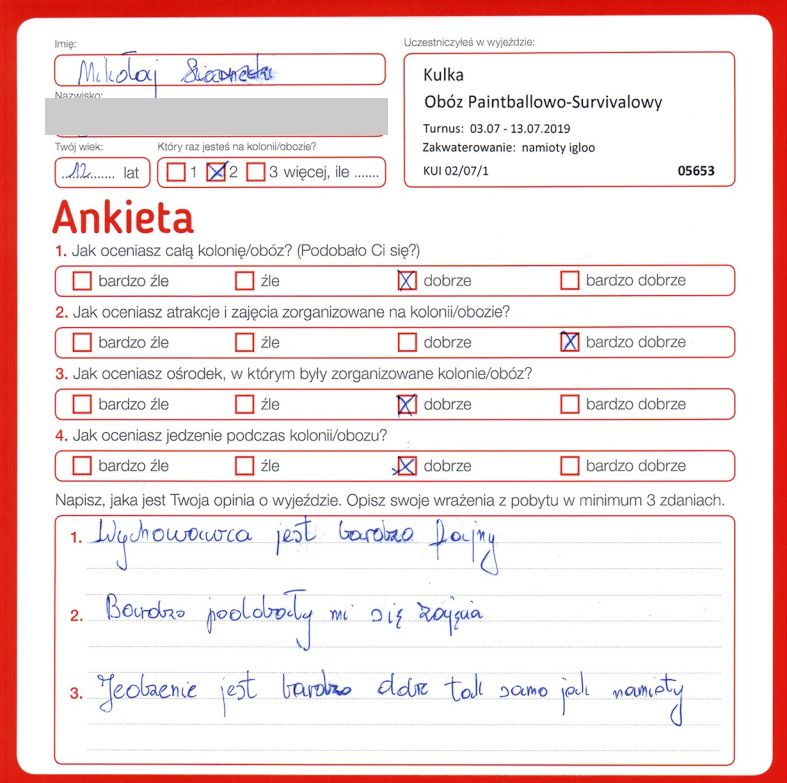 Imię:
Mikołaj
Nazwisko:
Twój wiek:
12 lat
Który raz jesteś na kolonii/obozie?
1 2 3 więcej, ile .......
Uczestniczyłeś w wyjeździe:
Kulka
Obóz Paintballowo-Survivalowy
Turnus: 03.07 - 13.07.2019
Zakwaterowanie: namioty igloo
KUI 02/07/1 05653
Ankieta
1. Jak oceniasz całą kolonię/obóz? (Podobało Ci się?)
bardzo źle źle dobrze bardzo dobrze
2. Jak oceniasz atrakcje i zajęcia zorganizowane na kolonii/obozie?
bardzo źle źle dobrze bardzo dobrze
3. Jak oceniasz ośrodek, w którym były zorganizowane kolonie/obóz?
bardzo źle źle dobrze bardzo dobrze
4. Jak oceniasz jedzenie podczas kolonii/obozu?
bardzo źle źle dobrze bardzo dobrze
Napisz, jaka jest Twoja opinia o wyjeździe. Opisz swoje wrażenia z pobytu w minimum 3 zdaniach.
1. Wychowawca jest bardzo fajny
2. Bardzo podobały mi się zajęcia
3. Jedzenie jest bardzo dobre tak samo jak namioty